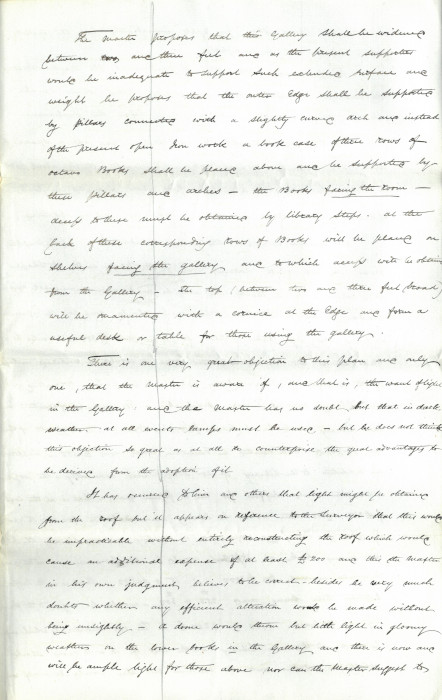 The Master proposes that this Gallery shall be widened
between two and three feet and as the present supporters
would be inadequate to support such extended surface and
weight he proposes that the outer Edge shall be supported
by pillars connected with a slightly curved arch and instead
of the present open Iron work a book case of three rows of
octavo Books shall be placed above and be supported by
these pillars and arches - the Books facing the room -
access to these must be obtained by library steps. at the
back of these corresponding rows of Books will be placed on
shelves facing the gallery and to which access will be obtained
from the Gallery - the top (between two and three feet broad)
will be ornamented with a cornice at the Edge and form a
useful desk or table for those using the gallery.
There is one very great objection to this plan and only
one, that the Master is aware of, and that is, the want of light
in the Gallery and the Master has no doubt but that in dark
weather at all events lamps must be used - but he does not think
this objection so great as at all to counterpoise the great advantages to
be derived from the adoption of it.
It has occurred to him and others that light might be obtained
from the roof but it appears on reference to the Surveyor that this would
be impracticable without entirely reconstructing the roof which would
cause an additional expense of at least £ 200 and this the Master
in his own judgment believes to be correct - besides he very much
doubts whether any efficient alteration could be made without
being unsightly - a dome would throw but little light in gloomy
weather on the lower books in the Gallery and there is now and
will be ample light for those above nor can the Master suggest to